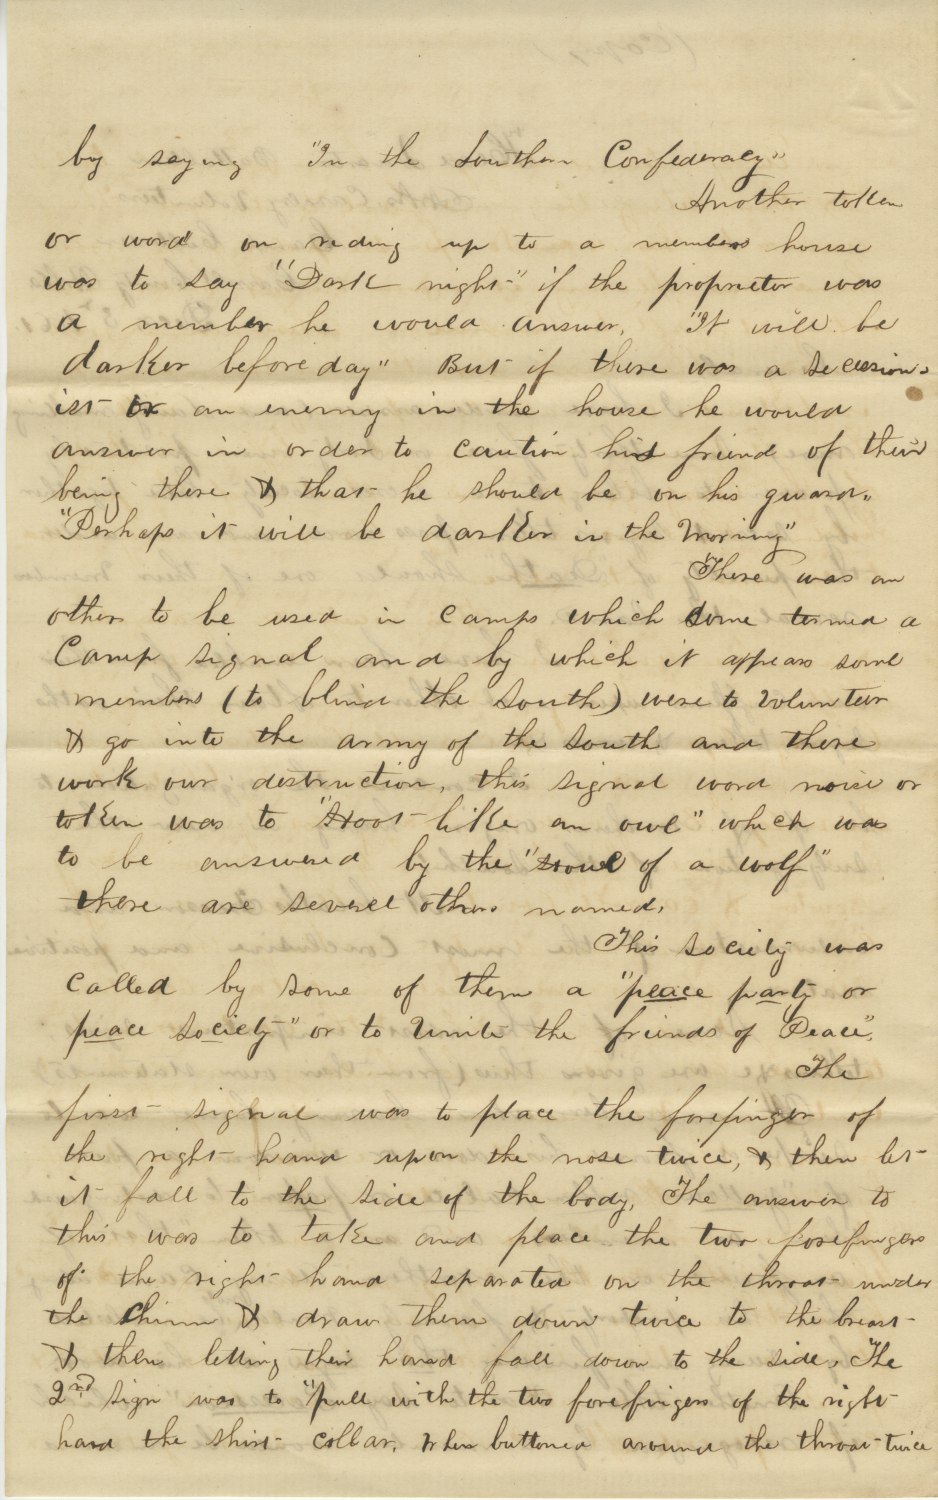 by saying "In the Southern Confederacy"
Another token
or word on reding up to a members house
was to say "Dark night" if the proprietor was
a member he would answer, "It will be
darker before day" But if there was a secession-
ist or an enemy in the house he would
answer in order to caution his friend of their
being there & that he should be on his guard,
"Perhaps it will be darker in the Morning"
There was an
other to be used in camps which some termed a
Camp signal and by which it appears some
members (to blind the South) were to volunteer
& go into the army of the South and there
work our destruction, this signal word noise or
token was to "Hoot like an owl" which was
to be answered by the "howl of a wolf"
there are severel others named.
This society was
called by some of them a "peace party or
peace society" or to Unite the friends of Peace".
The
first signal was to place the forefinger of
the right hand upon the nose twice, & then let
it fall to the side of the body. The answer to
this was to take and place the two forefingers
of the right hand separated on the throat under
the Chinn & draw them down twice to the breast
& then letting their hand fall down to the side. The
2nd sign was to "pull with the two forefingers of the right
hand the shirt collar, when buttoned around the throat twice